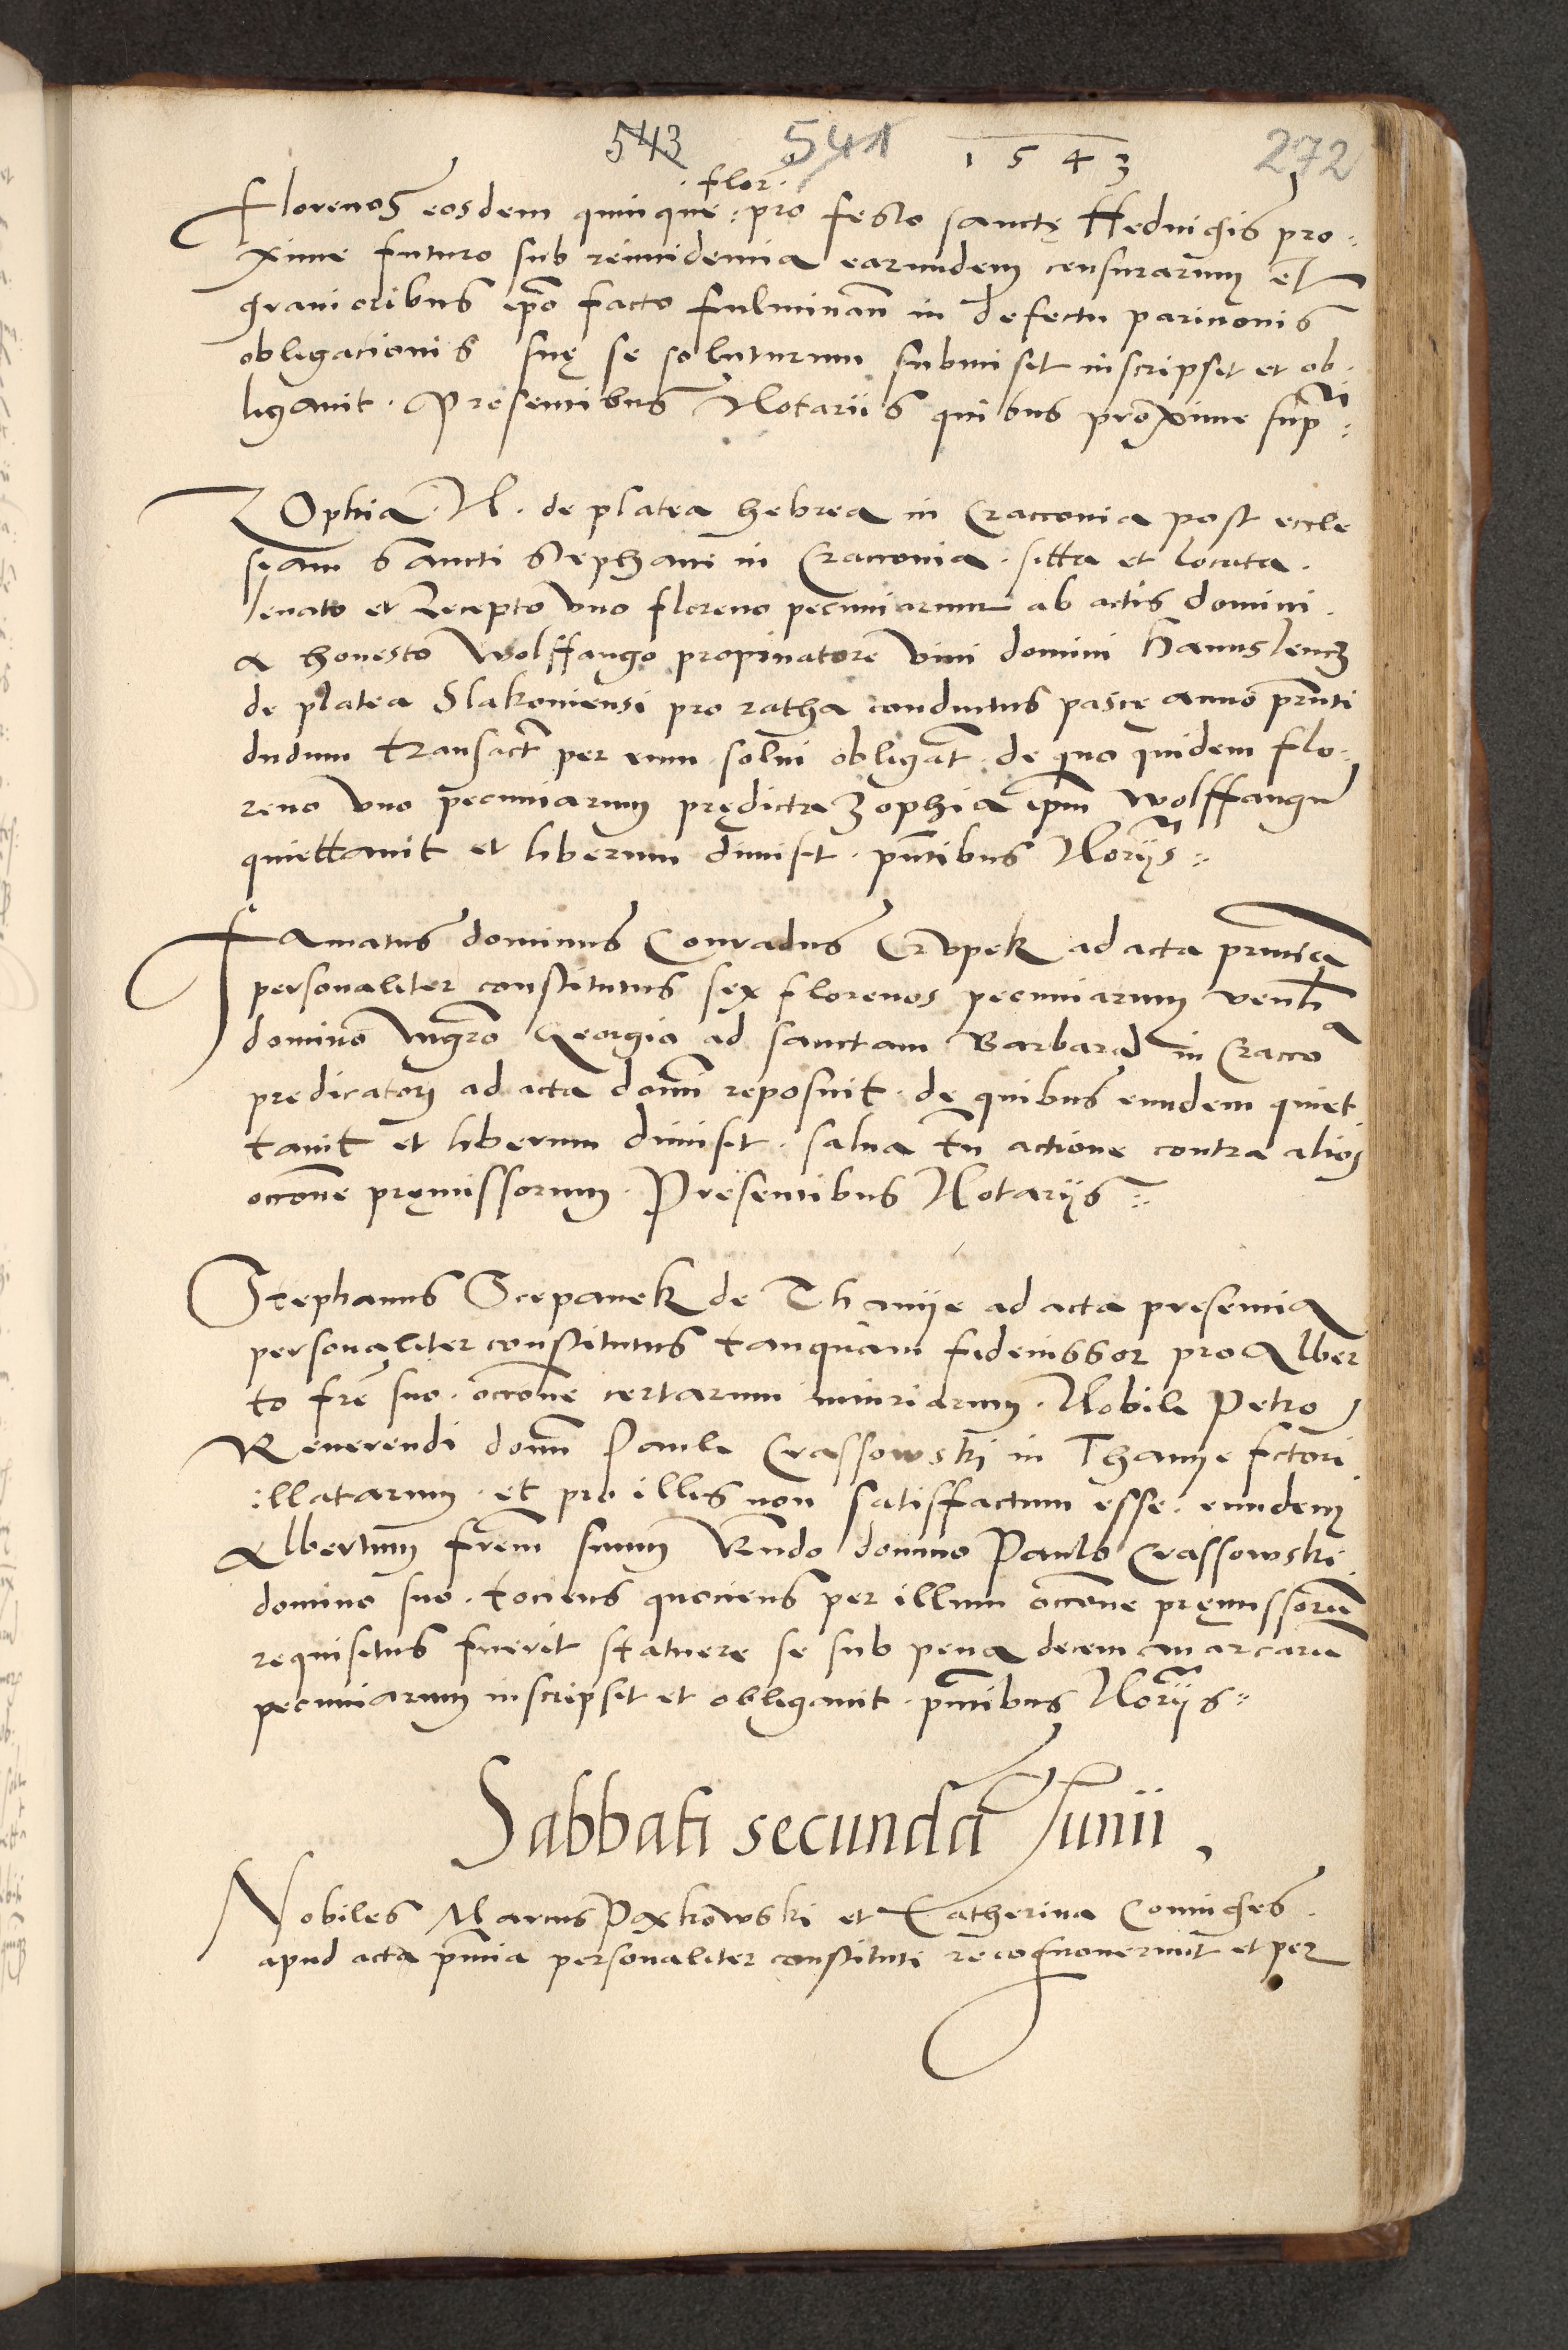 543 541 1543 272
flor
Florenos eosdem quinque : pro festo sanctę Heduigis pro:
xime futuro sub reincidencia earundem censurarum et
grauioribus ip̄o facto fulminan̄ in defectu paricionis
obligacionis suę se soluturum submisit inscripsit et ob:
ligauit. Presentibus Notariis quibus proxime sup̄:
ZOphia. N. de platea hebrea in Cracouia post eccle
siam Sancti Stephani in Cracouia. sitta et locata.
leuato et Recepto vno floreno pecuniarum ab actis domini.
a honesto Wolffango propinatore vini domini Hanus lencz
de platea Slakouiensi pro ratha conductus pascę anno pn̄ti
dudum transact̄ per eum solui obligat̄. de quo quidem flo:
reno vno pecuniarum prędicta Zophia ip̄m Wolffangū
quiettauit et liberum dimisit. pn̄tibus Nōrijs:
FAmatus dominus Conradus Crupek ad acta pn̄cia
personaliter constitutus sex florenos pecuniarum ven̄li
domino mgr̄o Georgio ad sanctam Barbarā in Cracoa
predicatori ad acta domī reposuit. de quibus eundem quiet
tauit et liberum dimisit. salua tn̄ actione contra alios
occōne pręmissorum. Presentibus Notarijs:
Stephanus Sczepanek de Thanije ad acta presencia
personaliter constitutus tanquam fideiussor pro Alber
to frē suo. occōne certarum iniuriarum. Nobile Petro
Reuerendi domī Pauli Crassowski in Thanije fctori
illatarum. et pro illis non satisffactum esse. eundem
Albertum frēm suum Rn̄do domino Paulo Crassowski
domino suo. tociens quociens per illum occōne pręmissorū
requisitus fuerit statuere se sub pena decem marcarū
pecuniarum inscripsit et obligauit. pn̄tibus Nōrijs:
Sabbati secunda Junii,
Nobiles Marcus Paxkowski et Catherina Coniuges.
apud acta pn̄cia personaliter constituti recognouerunt et per